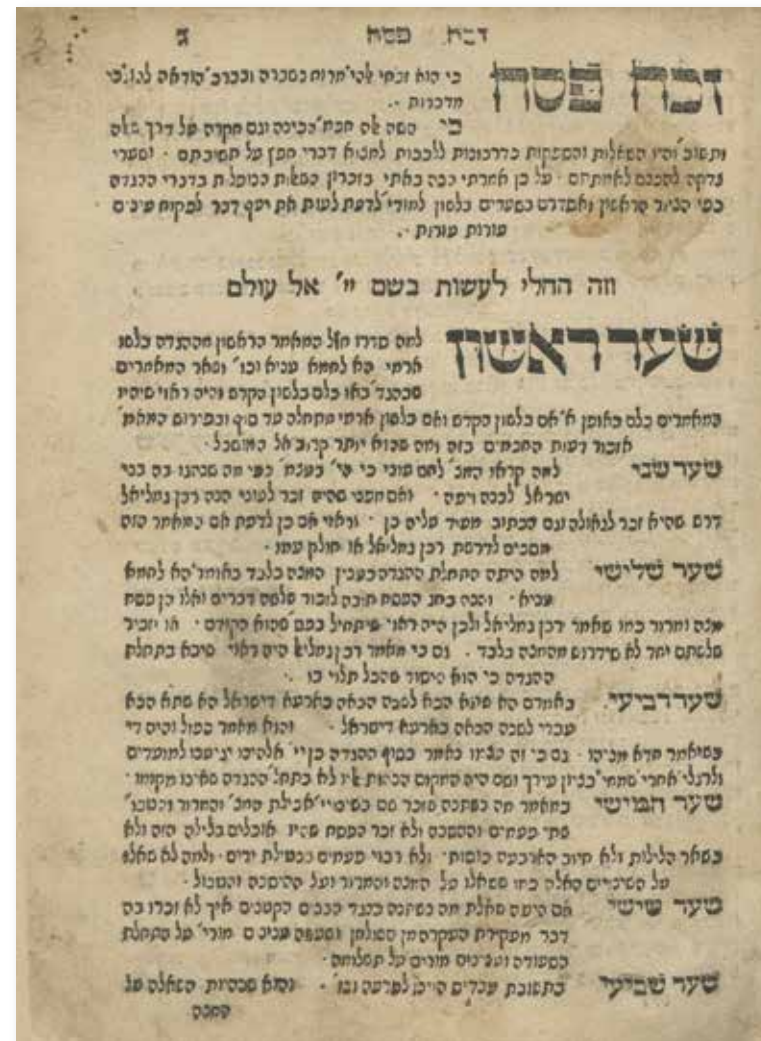 זבח פסח ג
זבח פסח
כי הוא זבחי אלהי' תרות בשברה ובברב' הודאה להג' כי
מדברות
כי הסה אה חכת' בבינה ועם חקרה על דרך שאלה
ותשוב' והיו השאלות והספקות כדרבונות ללבבות למצוא דברי חפץ על תשיבתם · ושערי
צדקה להכנס לאמתתם · על כן אמרתי ככה באתי בזכרון השאלות הנופלות בדברי ההגדה
כפי העיון הראשון ואסדרם בשערים בלשון למודי' לדעת לעות את יעף דבר לפקוח עינים
עורות עורות
וזה החלי לעשות בשם יי' אל עולם
שער ראשון
למה סדרו חזל המאמר הראשון מההגדה בלשו
ארמי הא לחמא עניא וכו' ושאר המאמרים
שבהגד' באו כלם בלשון הקדש והיה ראוי שיהיו
המאמרים כלם באופן א' אם בלשון הקדש ואם בלשון ארמי מתחלה עד סוף ובפירוש המאמ'
אזכור דעות החכמים בזה ומה שהוא יותר קרוב אל המושכל ·
שער שני למה קראו המצ' לחם עוני כי מי' בעצמ' כפי מה שנהגו בה בני
ישראל לבנה ויפה · ואם מפני שהיא זכר לעוני הנה רבן גמליאל
דרש שהיא זכר לגאולה ועם הכתוב מעיד עליה כן · וראוי אם כן לדעת אם המאמר הזה
מסכים לדרשת רבן גמליאל או חולק עמו ·
שער שלישי למה היתה התחלת ההגדה בענין המצה בלבד באומר' הא לחמא
עניא · והנה בחג הפסח חובה לזכור שלשה דברים ואלו הן פסח
מצה ומרור כמו שאמר רבן גמליאל ולכן היה ראוי שיתחיל בפס' שהוא הקודם · או יזכיר
שלשתם יחד לא שידרוש מהמצה בלבד · גם כי מאמר רבן גמליאל היה ראוי שיבא בתחלת
ההגדה כי הוא היסוד שהכל תלוי בו
שער רביעי. באמרם הא שתא הכא לשנה הבאה בארעא דישראל הא שתא הכא
עבדי לשנה הבאה בארעא דישראל · והוא מאמר כפול והיה די
בשיאמר חדא מניהו · גם כי זה עצמו נאמר בסוף ההגדה כן יי' אלהינו יגיענו למועדים
ולרגלי' אחרי' שמחי' בבנין עירך ושם היה המקום הנאות אליו לא בתחל' ההגדה שאינו מקומו ·
שער חמישי במאמר מה נשתנה שזכר שם בשינויי' אכילת המצ' והמרור והטבו'
שתי פעמים וההסבה ולא זכר הפסח שהיו אוכלים בלילה הזה ולא
בשאר הלילות ולא חיוב הארבעה כוסות · ולא רבוי פעמים בנטילת ידים · ולמה לא שאלו
על השינויים האלה כמו ששאלו על המצה והמרור ועל ההיסבה והטבול ·
שער שישי אם היתה שאלת מה נשתנה כנגד הבנים הקטנים איך לא זכרו בה
דבר מעקירת הקערה מן השולחן ושעשה ענינם מורי' על התחלת
הסעודה וענינם מורים על תשלומה ·
שער שביעי בתשובת עבדים היינו לפרעה וכו' · והוא שבהיות השאלה על
המצה